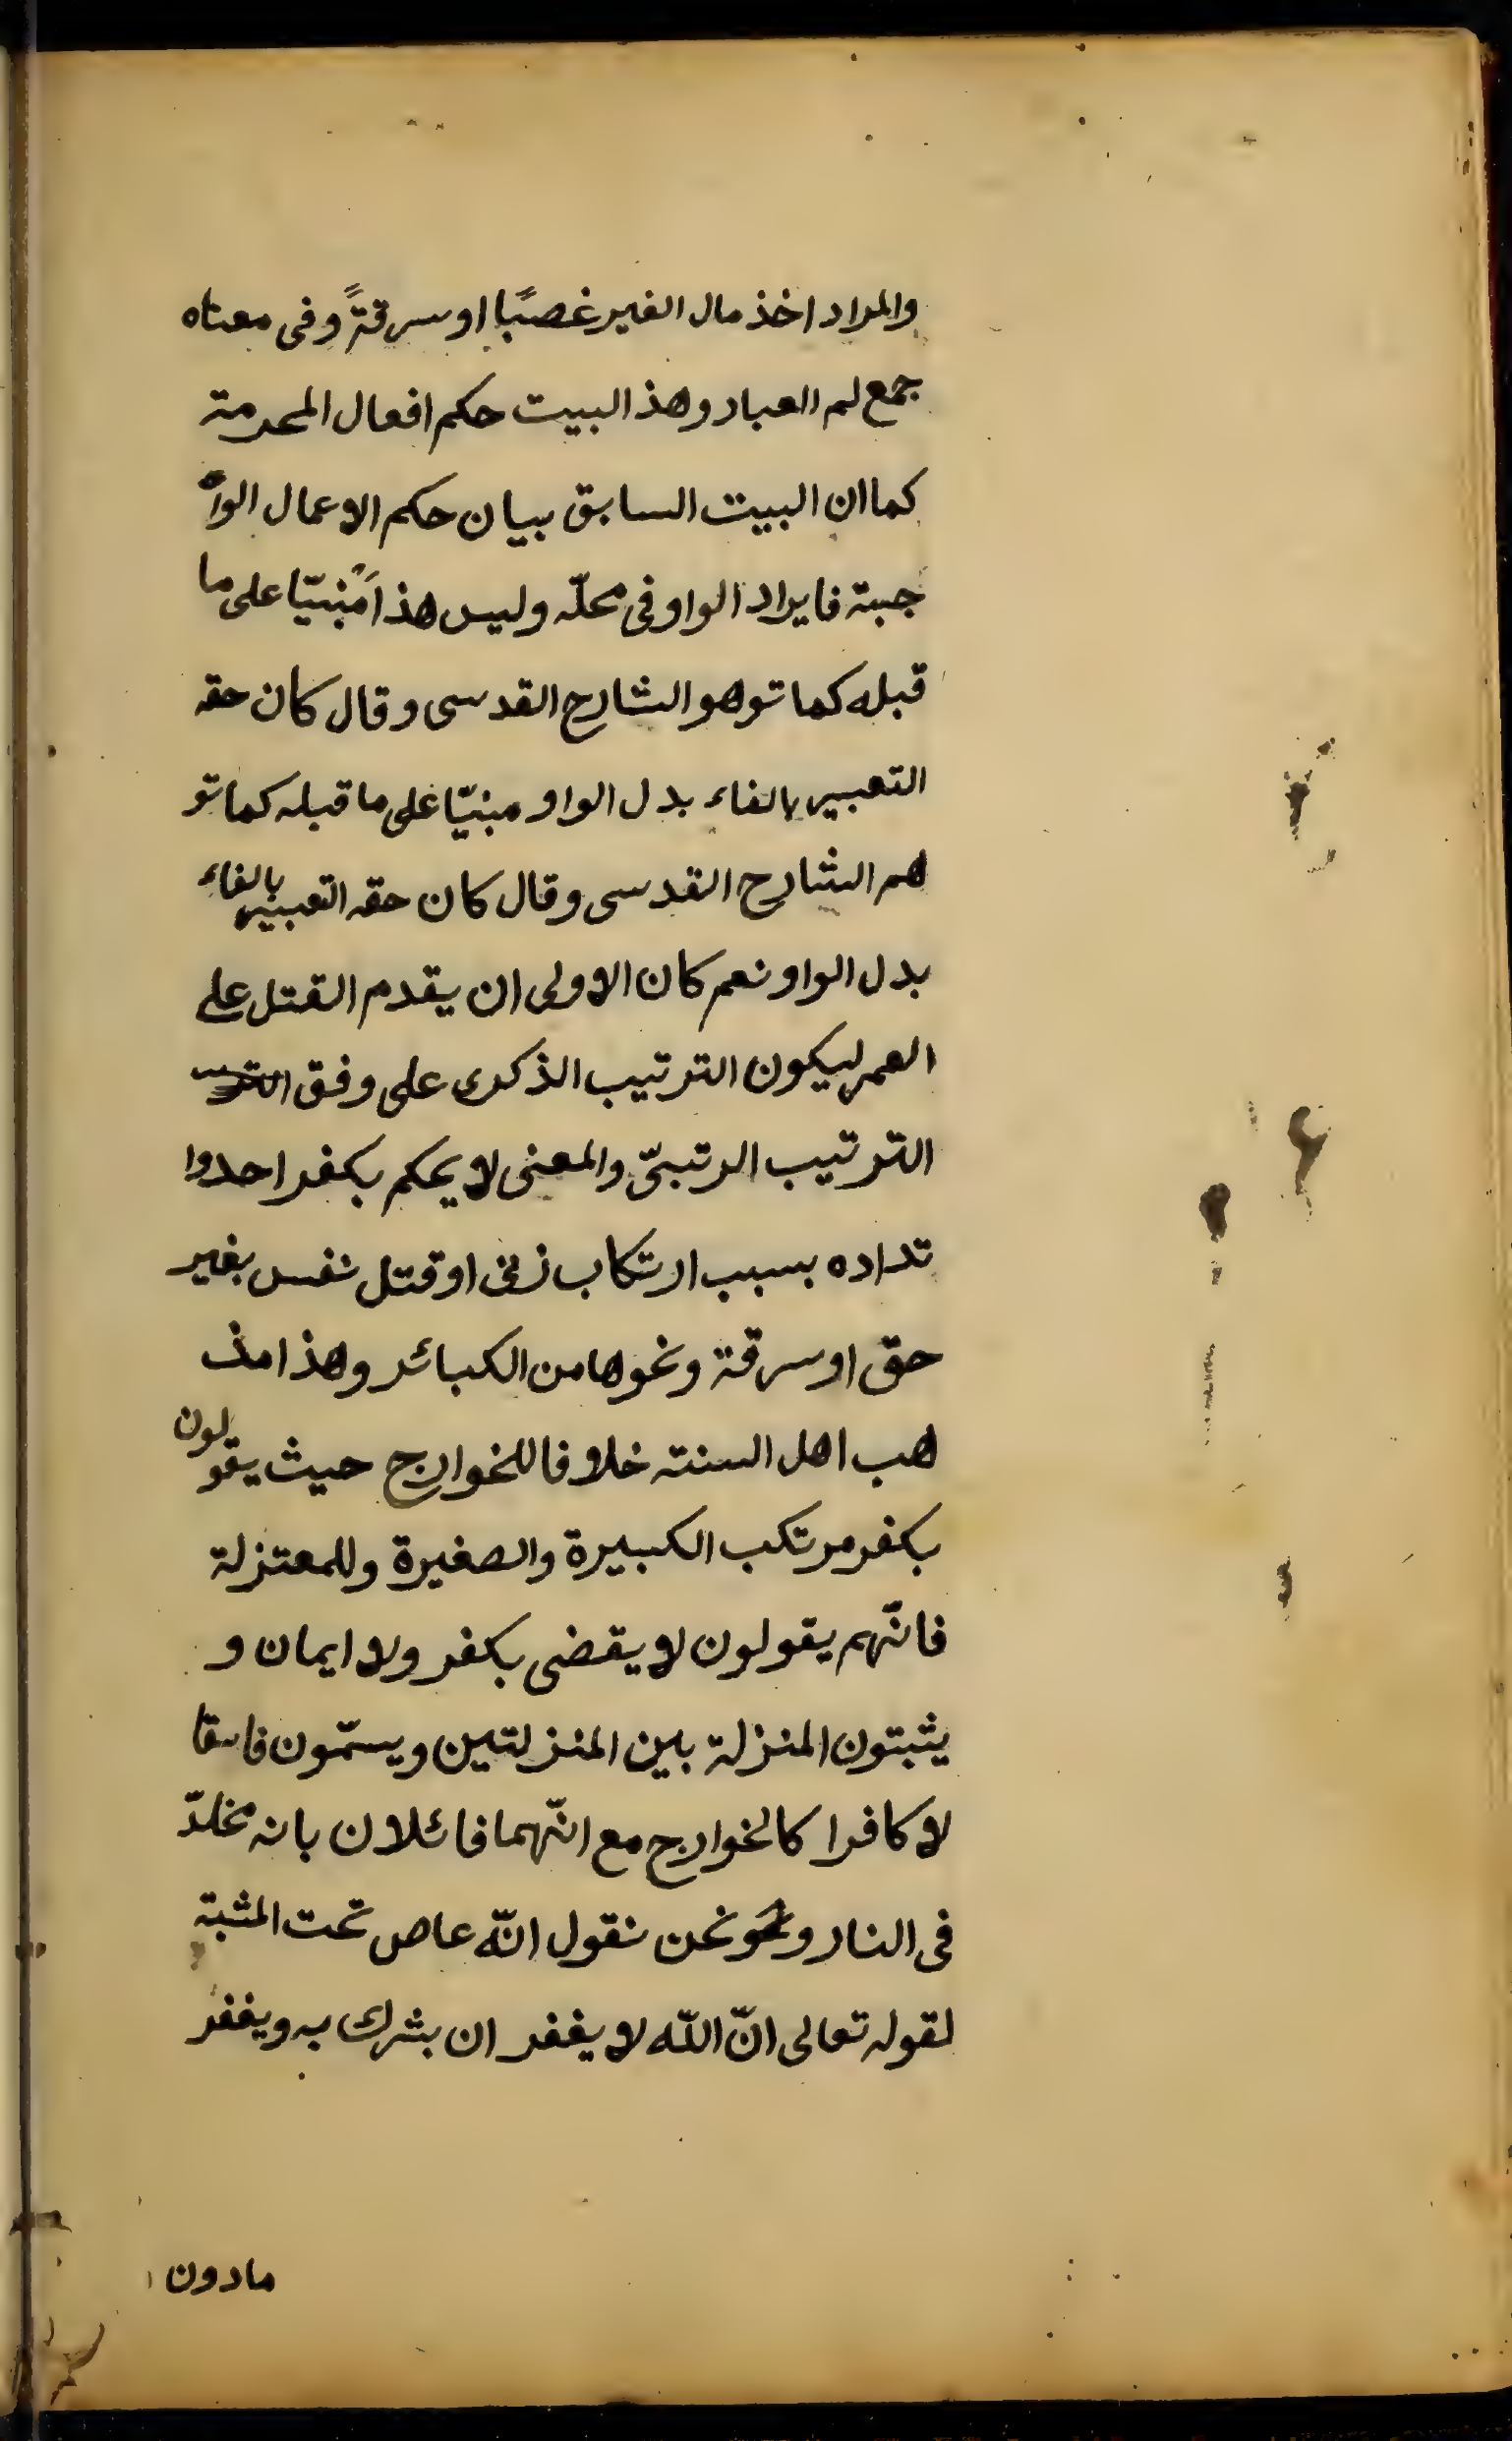 والمراد اخذ مال الغير غصبًا او سرقةً وفى معناه
جمع لم العباد وهذ البيت حكم افعال المحرمة
كما ان البيت السابق بيان حكم الاعمال الوا
جبة فايراد الواو فى محلّه وليس هذا مَبْنيّا على ما
قبله كما توهو الشارح القدسى وقال كان حقه
التعبير بالفاء بدل الواو مبنيّا على ما قبله كما تو
هم الشارح القدسى وقال كان حقه التعبير بالفاء
بدل الواو نعم كان الاولى ان يقدم القتل على
العمر ليكون الترتيب الذكرى على وفق
الترتيب الرتبىّ والمعنى لا يحكم بكفر احدوا
تداده بسبب ارتكاب زنى او قتل نفس بغير
حق او سرقة ونحوها من الكبائر وهذا مذ
هب اهل السنته خلافا للخوارج حيث يقولون
بكفر مرتكب الكبيرة والصغيرة وللمعتزلة
فانّهم يقولون لا يقضى بكفر ولا ايمان و
يثبتون المنزلة بين المنزلتين ويسمّون فاسقا
لا كافرا كالخوارج مع انّهما قائلان بانه مخلدّ
فى النار ونحو نحن نقول انّه عاص تحت المشية
لقوله تعالى انّ اللّه لا يغفر ان يشرك به ويغفر
مادون